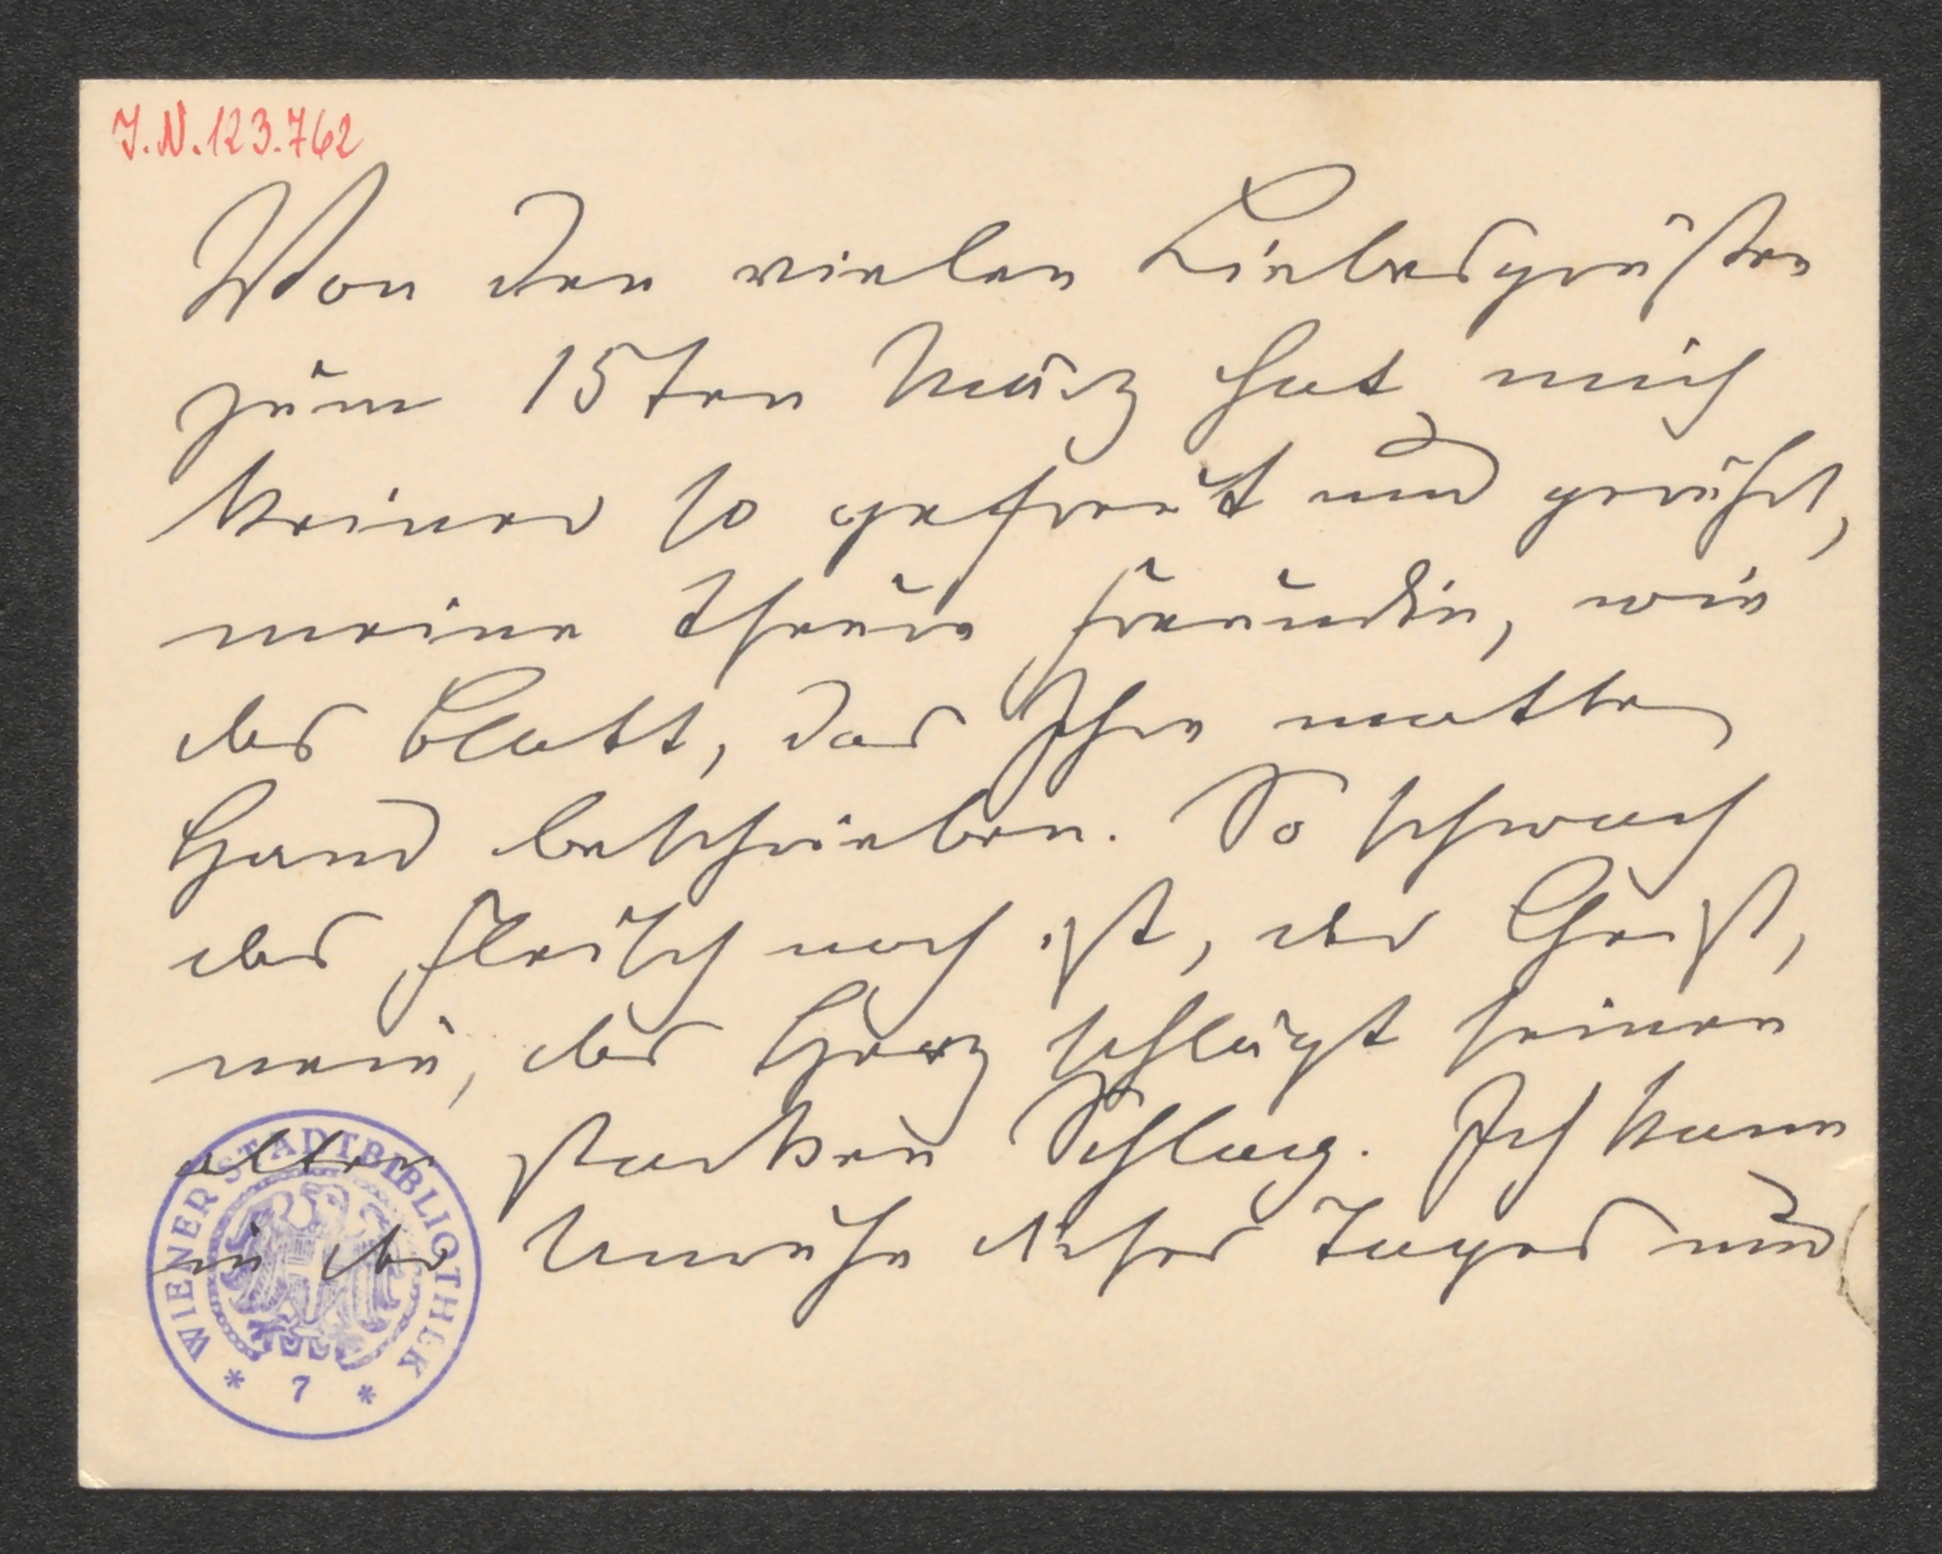 I.N. 123.762
Von den vielen Liebesgrüßen
zum 15ten März hat mich
keiner so gefreut und gerührt,
meine theure Freundin, wie
das Blatt, das Ihre matte
Hand beschrieben. So schwach
das Fleisch noch ist, der Geist,
nein, das Herz schlägt seinen
alten starken Schlag. Ich kann
in der Unruhe dieses Tages und
WIENER STADTBIBLIOTHEK
* 7 *